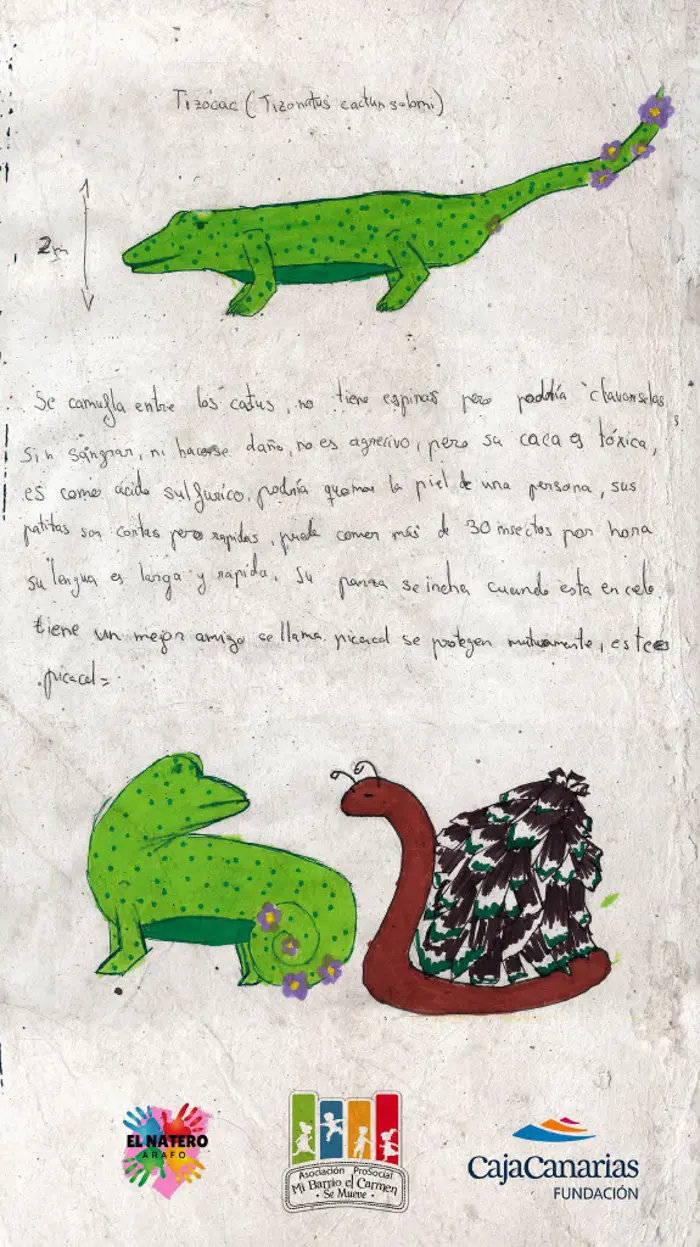 Tizocac (Tizonatus cactunsalomi)
2m
Se camufla entre los catus, no tiene espinas pero podría clavanselas
sin sangrar, ni hacerse daño, no es agrecivo, pero su caca es tóxica,
es como ácido sulfurico, podría quemar la piel de una persona, sus
patitas son contas pero rapidas, puede comer más de 30 insectos por hora
su lengua es larga y rapida, su panza se incha cuando esta en celo.
tiene un mejor amigo se llama picacol se protegen mutuamente, este es
picacol=
EL NATERO
ARAFO
Asociación ProSocial
Mi Barrio el Carmen
• Se Mueve •
CajaCanarias
FUNDACIÓN